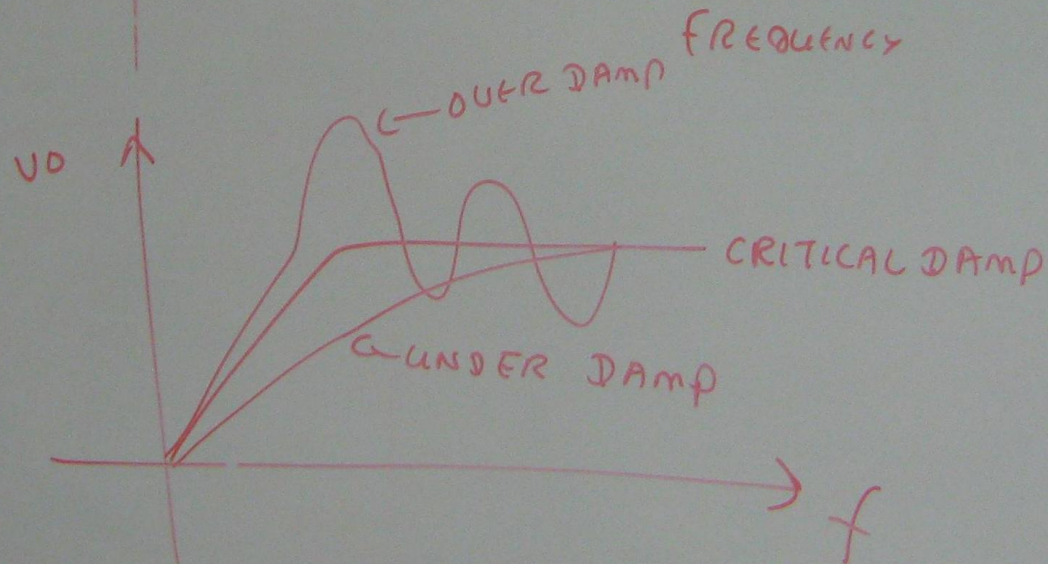 FREQUENCY
OVER DAMP
VO
CRITICAL DAMP
UNDER DAMP
f